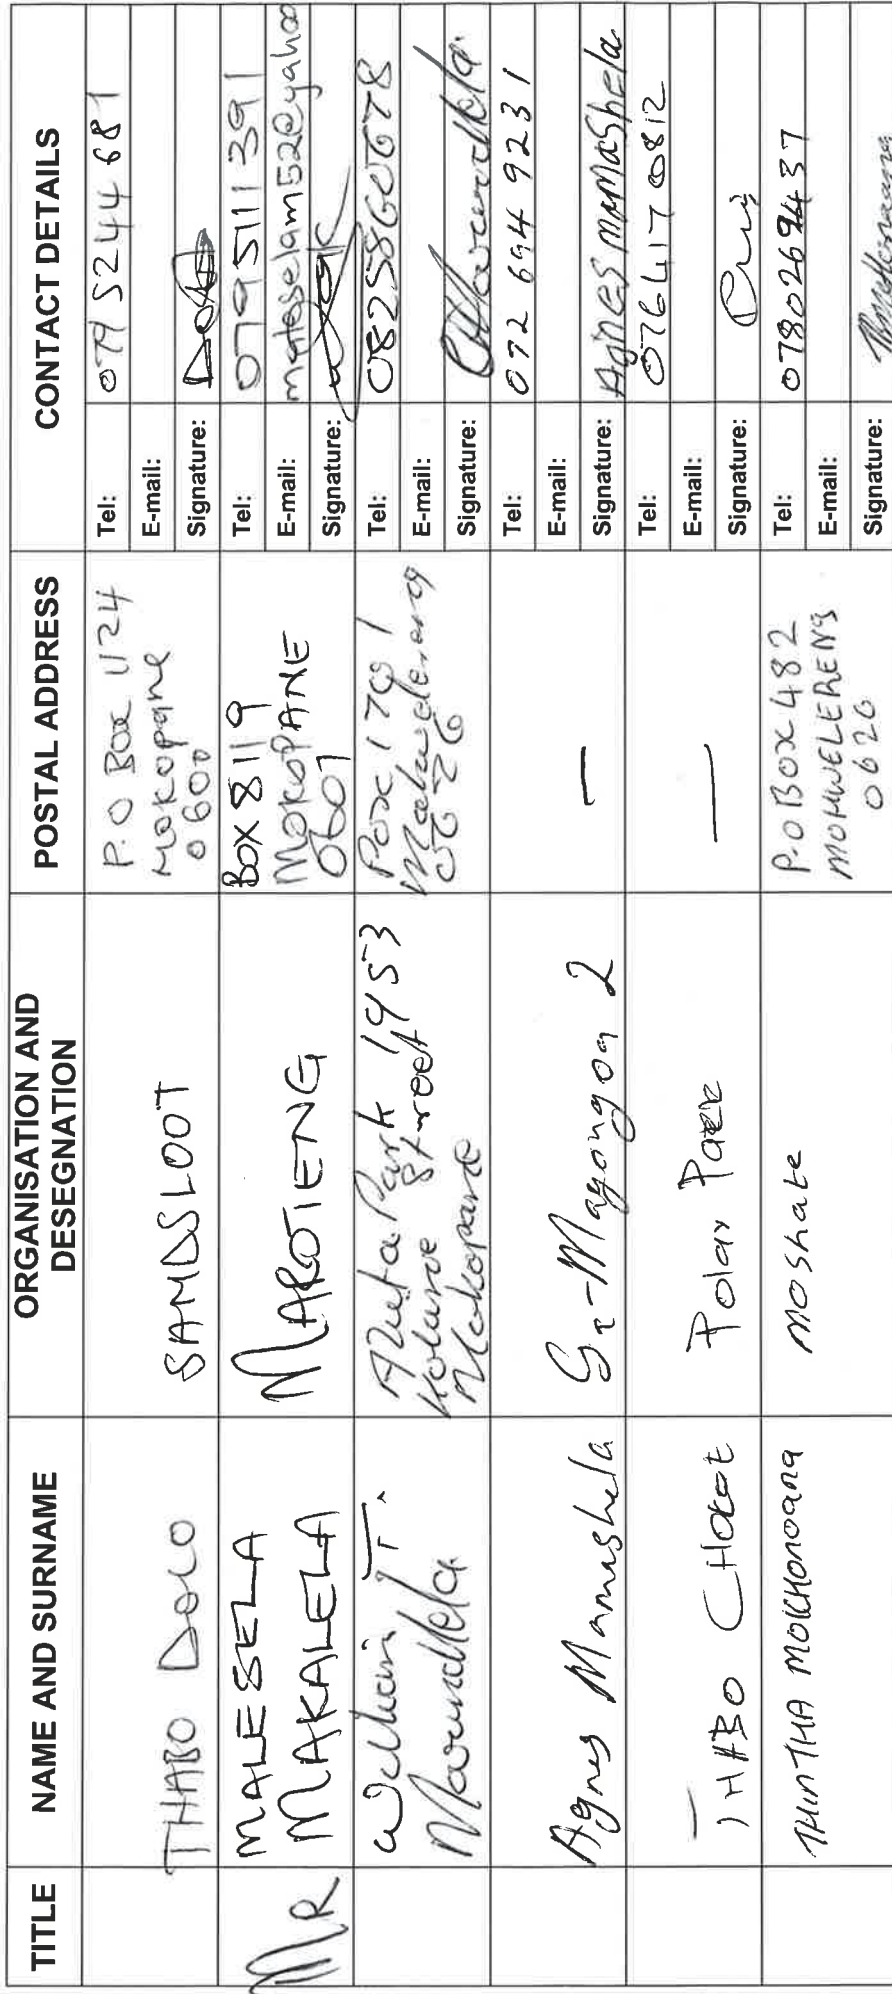 TITLE
NAME AND SURNAME
ORGANISATION AND
DESEGNATION
POSTAL ADDRESS
CONTACT DETAILS
THABO DOLO
SAMDSLOOT
P.O Box 1124
Mokopane
0600
Tel: 0795244681
E-mail:
Signature:
MR
MALESELA
MAKALELA
MAROTENG
BOX 8119
MOKOPANE
0601
Tel: 0795111391
E-mail: maleselam52@yahoo
Signature:
William T.
Park 1953
Street
Mokopane
1701
0626
Tel: 0825860678
E-mail:
Signature:
Agnes Mamashela
Ga-Magongoa 2
—
Tel: 072 694 9231
E-mail:
Signature: Agnes Mamashela
THABO
Polar Park
—
Tel: 0764170812
E-mail:
Signature:
THINTHA MOKHONOANA
Moshate
P.O BOX 482
MOHWELERENG
0626
Tel: 0780269437
E-mail:
Signature: